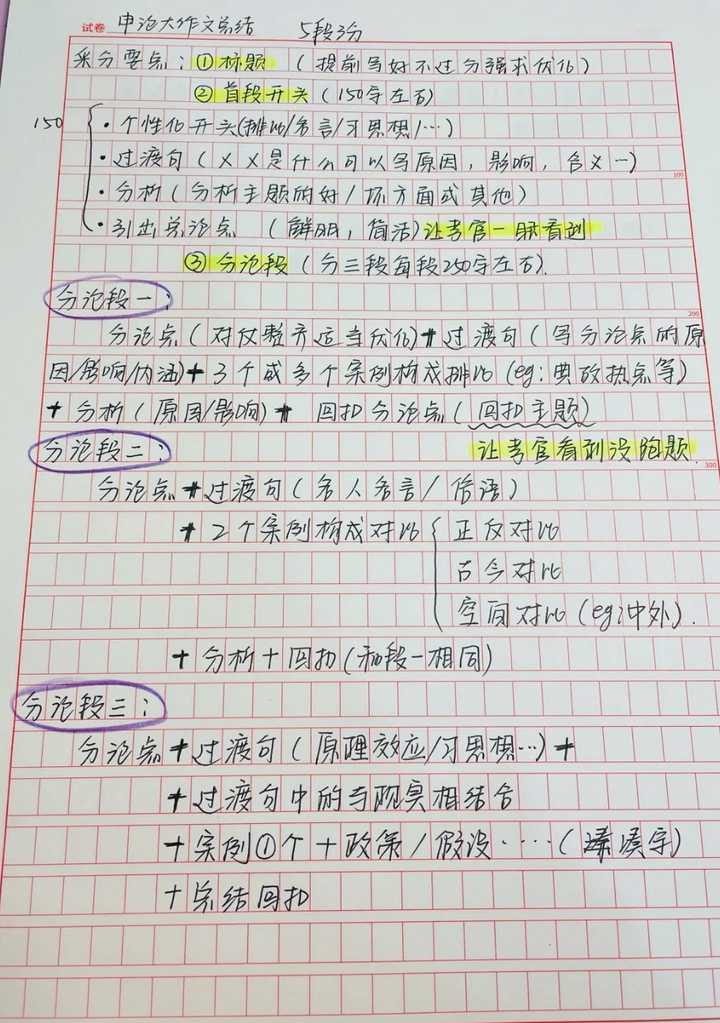 试卷 申论大作文总结 5段3分
采分要点：①标题（提前写好不过分强求优化）
②首段开头（150字左右）
150
·个性化开头(排比/名言/习思想/…)
·过渡句（××是什么可以写原因，影响，含义…）
100
·分析（分析主题的好/坏方面或其他）
·引出总论点（鲜明，简洁）让考官一眼看到
③分论段（分三段每段250字左右）.
分论段一：
200
分论点（对仗整齐适当优化)+过渡句（写分论点的原
因/影响/内涵)+3个或多个案例构成排比(eg:典故热点等)
+分析（原因/影响)+ 回扣分论点（回扣主题）
分论段二： 让考官看到没跑题.
300
分论点+过渡句（名人名言/俗语）
+2个案例构成对比{正反对比
古今对比
空间对比(eg:中外).
+分析+回扣(和段一相同)
分论段三：
分论点+过渡句（原理效应/习思想…)+
+过渡句中的与现实相结合
+案例①个+政策/假设····（凑字）
+总结回扣